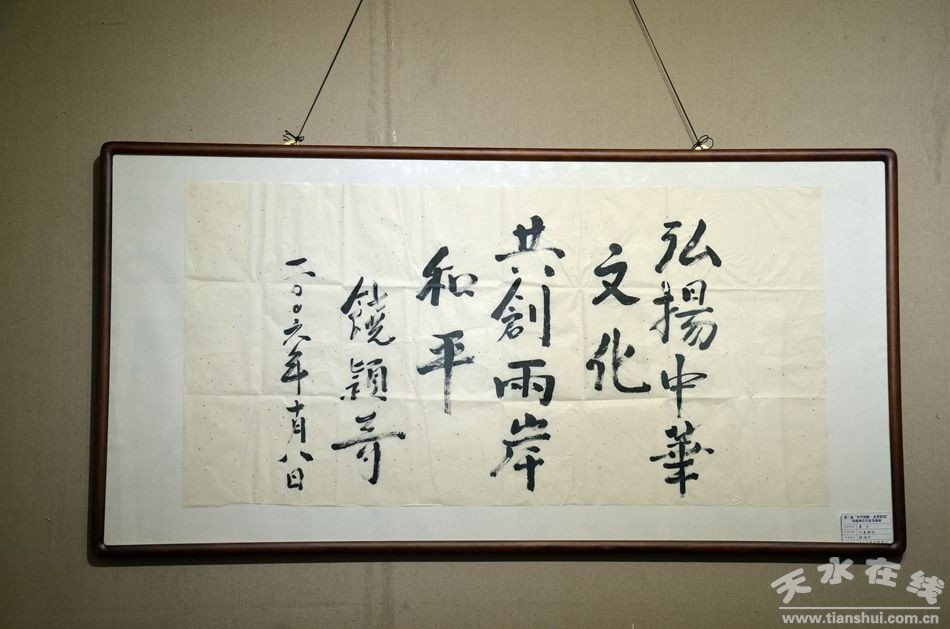 弘揚中華
文化
共創兩岸
和平
饒穎奇
二〇〇六年十月八日
天水在线
www.tianshui.com.cn